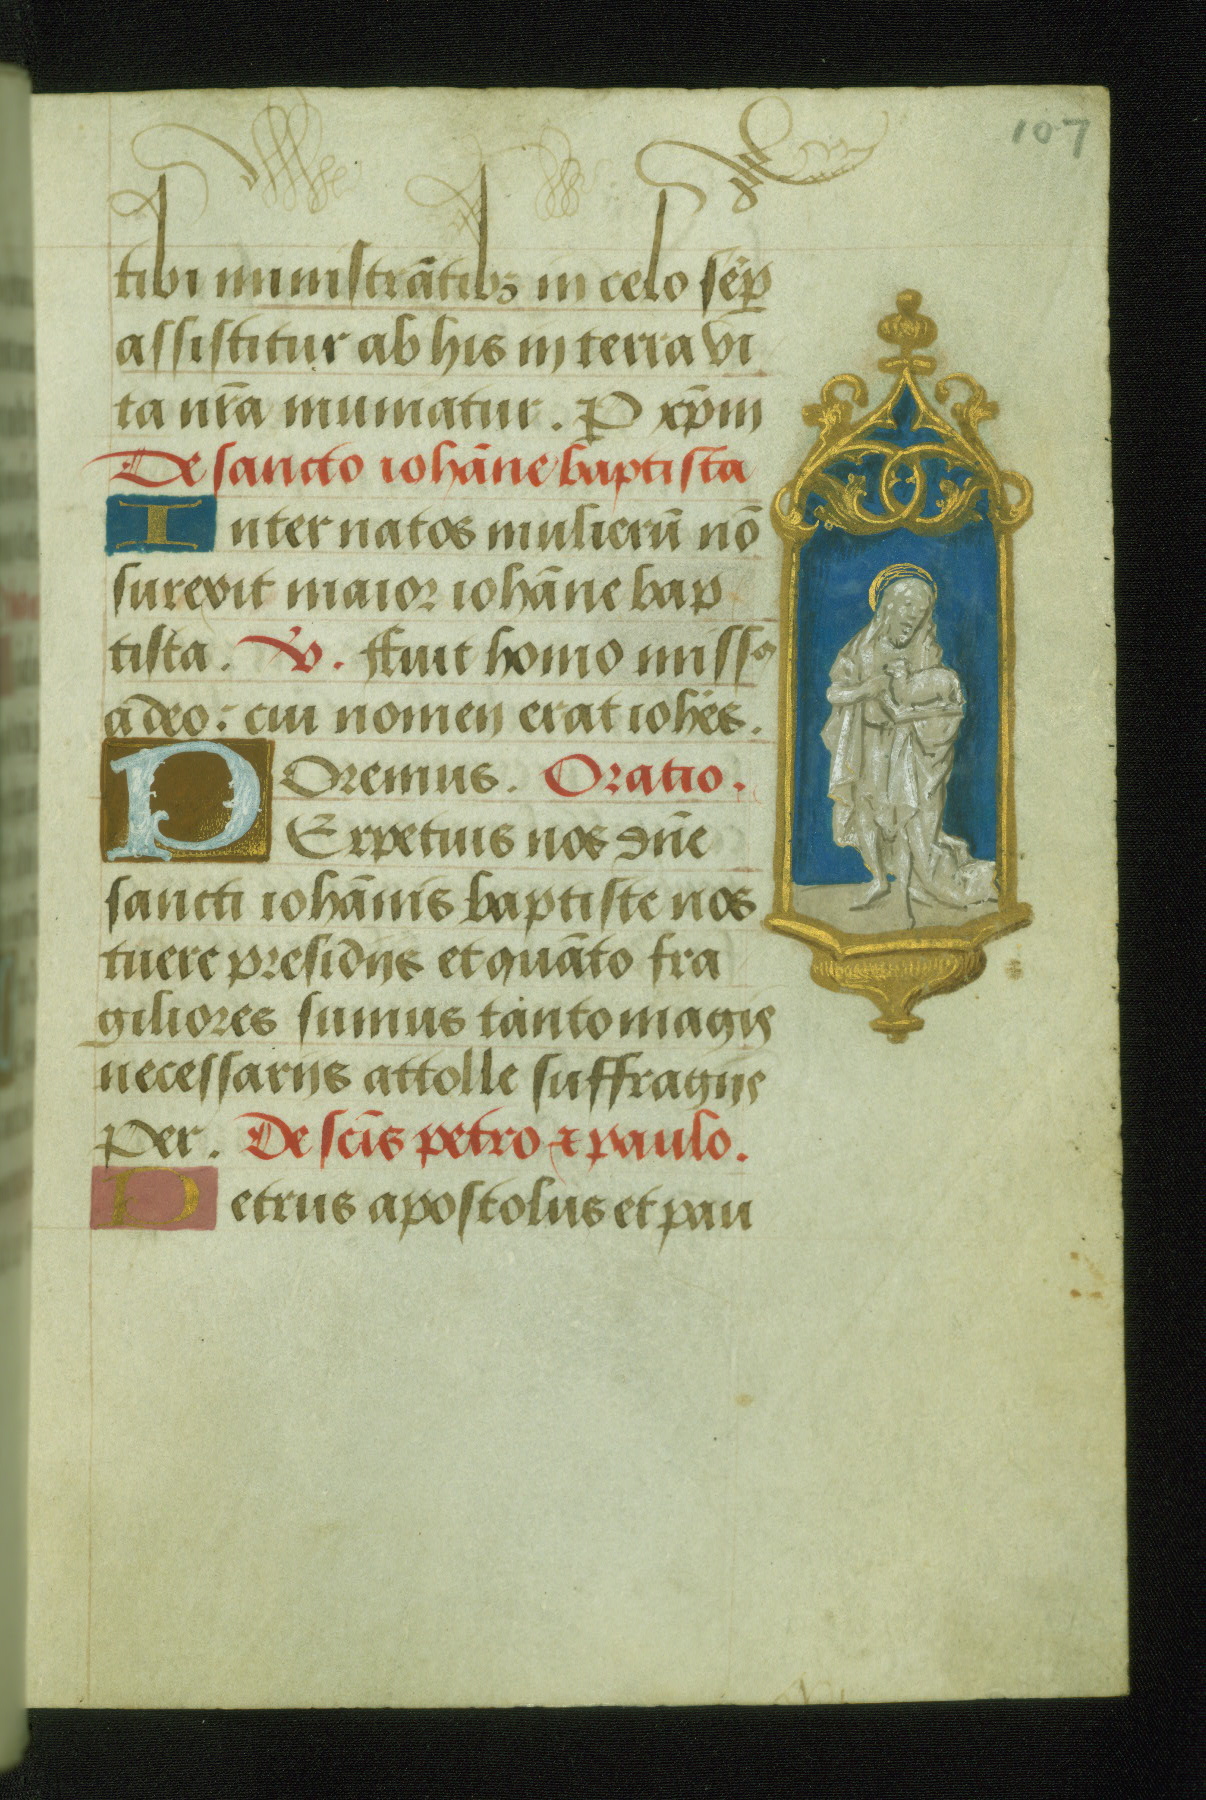 107
tibi ministrātibꝫ in celo sēꝑ
assistitur ab his in terra vi
ta nr̄a muniatur. P xp̄m
De sancto iohāne baptista
Inter natos mulierū nō
surexit maior iohāne bap
tista. V. ffuit homo missꝰ
a deo: cui nomen erat iohēs.
Oremus. Oratio.
PErpetuis nos dn̄e
sancti iohānis baptiste nos
tuere presidijs et quāto fra
giliores sumus tanto magis
necessarijs attolle suffragijs
Per. De scīs petro ⁊ paulo.
Petrus apostolus et pau